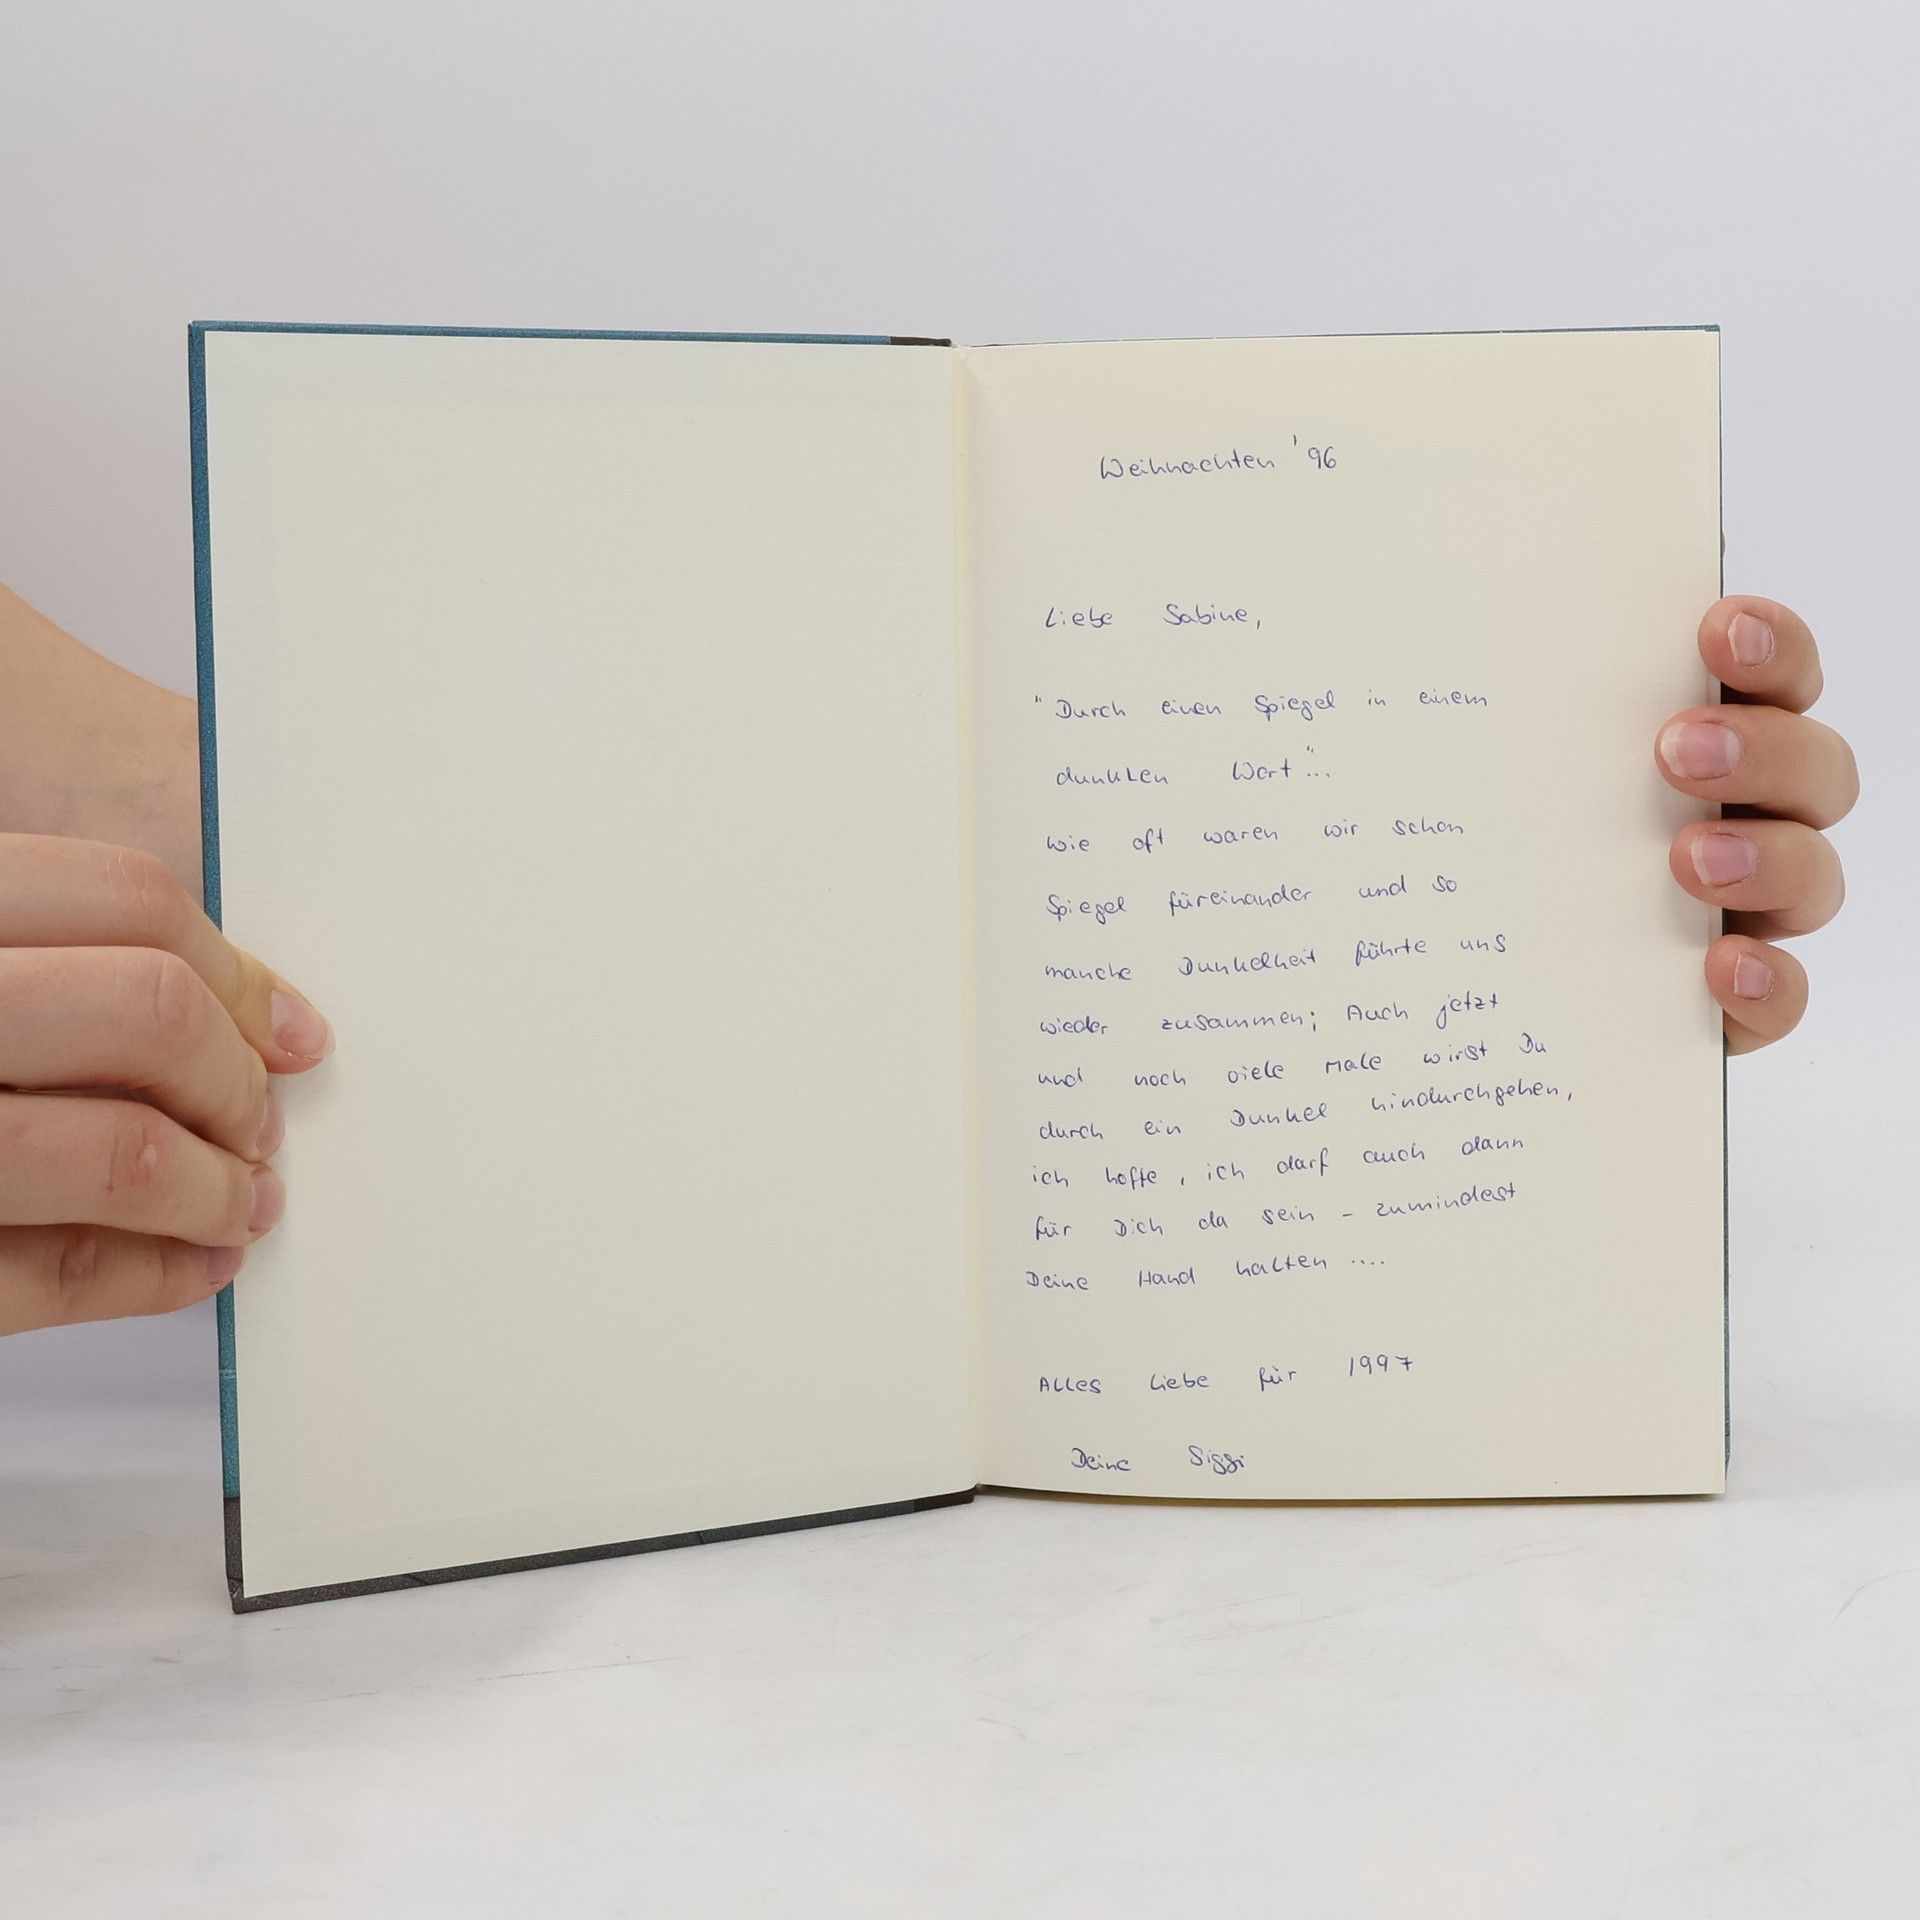 Weihnachten '96
Liebe Sabine,
"Durch einen Spiegel in einem
dunklen Wort"...
wie oft waren wir schon
Spiegel füreinander und so
manche Dunkelheit führte uns
wieder zusammen; Auch jetzt
und noch viele Male wirst Du
durch ein Dunkel hindurchgehen,
ich hoffe, ich darf auch dann
für Dich da sein - zumindest
Deine Hand halten ....
Alles Liebe für 1997
Deine Siggi